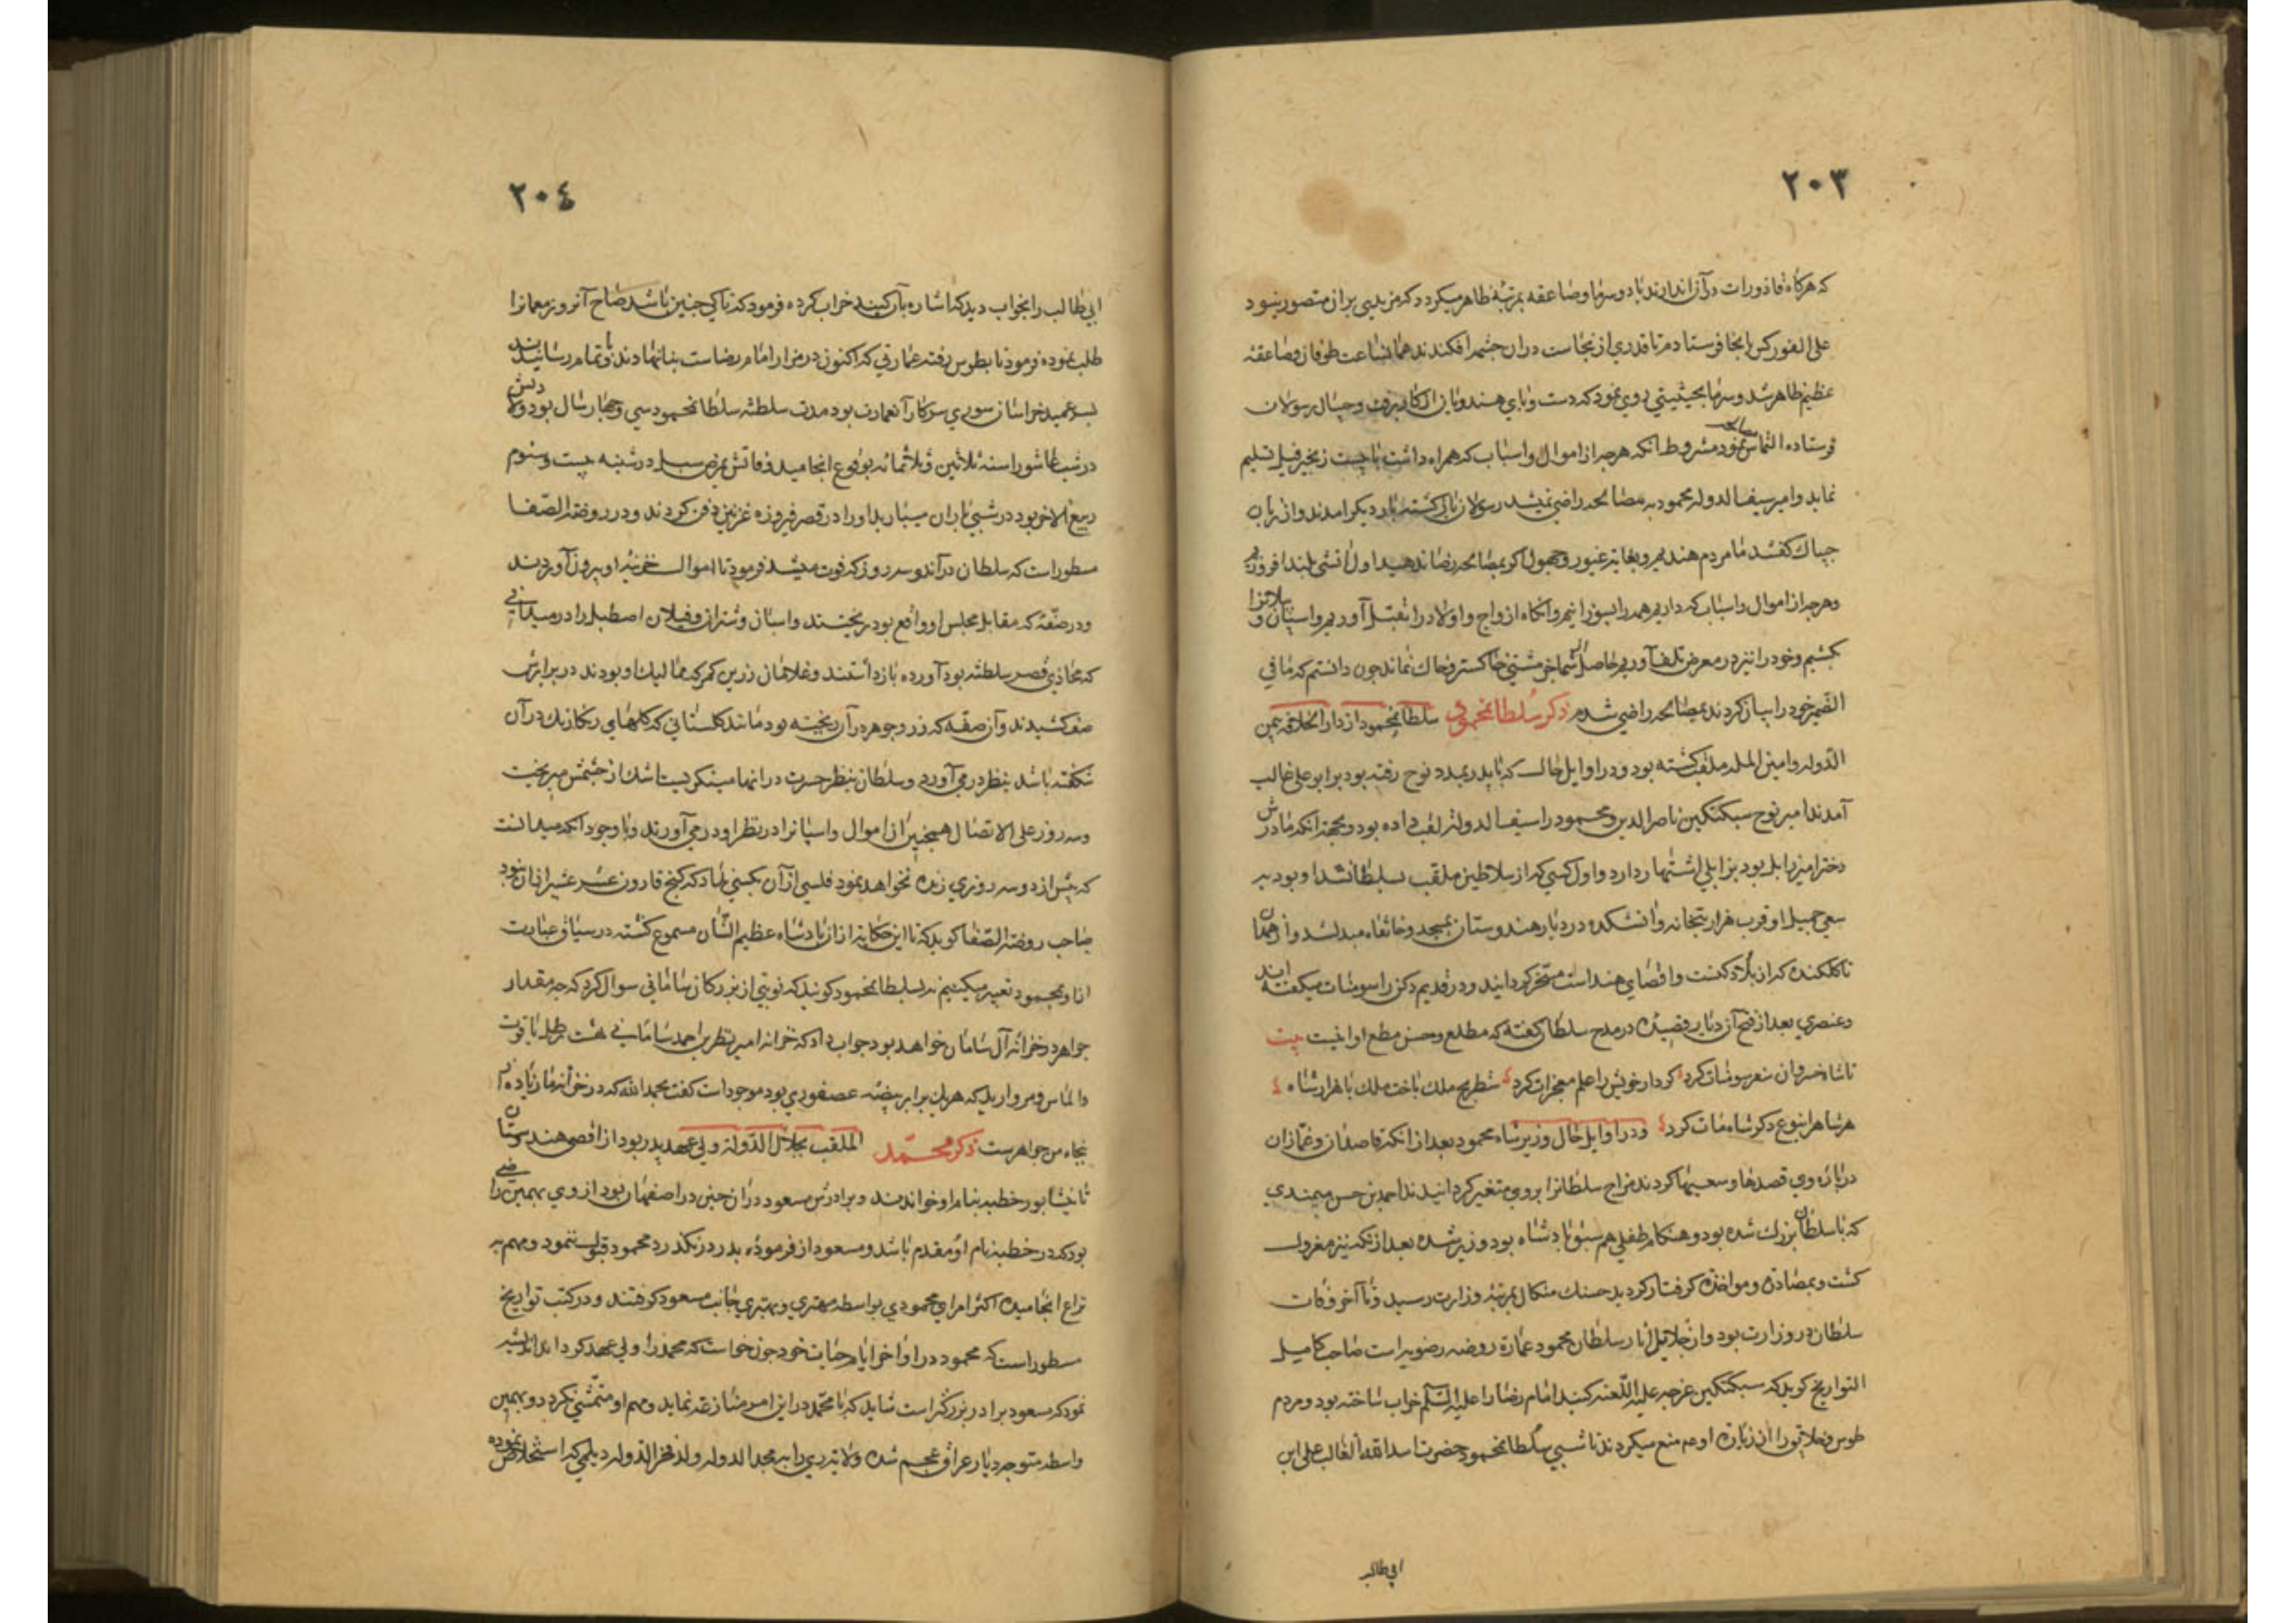 ٢٠٣
که هرکاه قاذورات در آن اندازند باد و سرما و صاعقه بمرتبهٔ ظاهر میکردد که مزیدی بر ان متصور نبود
علی الفور کس بانجا فرستادم تا قدری از نجاست در ان چشمه افکندند همان ساعت طوفان و صاعقه
عظیم ظاهر شد و سرما بحیثیتی روی نمود که دست و پای هندویان از کار برفت و جیپال رسولان
فرستاده التماس مصالحه نمود مشروط انکه هرچه از اموال و اسباب که همراه داشت با بیست زنجیر فیل تسلیم
نماید و امیر سیف الدوله محمود به مصالحه راضی نمیشد رسولان باز کشته بار دیکر امدند و از زبان
جیپال کفتند ما مردم هندیم و بغایة غیور و جهول اکر بمصالحه رضا ندهید اول اتشی بلند افروزیم
و هرچه از اموال و اسباب که داریم همه را بسوزانیم و انکاه ازواج و اولاد را بقتل آوریم و اسپان و پیلانرا
بکشیم و خود را نیز در معرض تلف آوریم حاصل شما جز مشتی خاکستر و خاک نماند چون دانستم که ما فی
الضمیر خود را بیان کردند بمصالحه راضی شدم ذکر سلطان محمود سلطان محمود از دار الخلافه یمین
الدوله و امین المله ملقب کشته بود و در اوایل حال که با پدر بمدد نوح رفته بود بر ابو علی غالب
آمدند امیر نوح سبکتکین ناصر الدین و محمود را سیف الدوله لقب داده بود و بجهة انکه مادرش
دختر امیر زابل بود بزابلی اشتهار دارد و اول کسی که از سلاطین ملقب بسلطان شد او بود به
سعی جمیل او قرب هزار بتخانه و اتشکده در دیار هندوستان بمسجد و خانقاه مبدل شد و از همدان
تا کلکنده که از بلاد دکنست و اقصای هند است مسخر کردانید و در قدیم دکن را سومنات میکفته اند
و عنصری بعد از فتح آن دیار قصیده در مدح سلطان کفته که مطلع و حسن مطلع او اینست بیت
تا شاه خسروان سفر سومنات کرد کردار خویش را علم معجزات کرد شطرنج ملک باخت ملک با هزار شاه
هر شاه را بنوع دکر شاه مات کرد و در اوایل حال وزیر شاه محمود بعد از انکه قاصدان و غمازان
در باره وی قصدها و سعیها کردند مزاج سلطانرا بر وی متغیر کردانیدند احمد بن حسن میمندی
که با سلطان بزرک شده بود و هنکام طفلی هم سبق پادشاه بود وزیر شده بعد از انکه نیز معزول
کشت و بمصادره و مواخذه کرفتار کردید حسنک میکال بمرتبهٔ وزارت رسید و تا آخر وفات
سلطان در وزارت بود و از جلایل اثار سلطان محمود عمارة روضه رضویه است صاحب کامل
التواریخ کوید که سبکتکین غزجه علیه اللعنه کنبد امام رضا را علیه السلم خراب ساخته بود و مردم
طوس و خلایق را از زیارة او هم منع میکردند تا شبی سلطان محمود حضرت اسد الله الغالب علی ابن
ابی طالب
٢٠٤
ابی طالب را بخواب دید که اشاره بآن کنبد خراب کرده فرمود که تا کی چنین باشد صباح آنروز معمارانرا
طلب نموده فرمود تا بطوس رفته عمارتی که اکنون در مزار امام رضاست بنا نهادند و باتمام رسانیدند
بسر عمید خراسان سوری سرکار آن عمارت بود مدت سلطنة سلطان محمود سی و چهار سال بود ولادتش
در شب عاشورا سنه ثلاثین و ثلاثمائه بوقوع انجامید وفاتش بمرض سل در شنبه بیست و سوم
ربیع الاخر بود در شبی باران میبارید او را در قصر فیروزه غزنین دفن کردند و در روضة الصفا
مسطور است که سلطان در آن دو سه روز که فوت میشد فرمود تا اموال خزینه او بیرون آوردند
و در صفهٔ که مقابل مجلس او واقع بود ریختند و اسبان و شتران و فیلان اصطبل را در میدانی
که محاذی قصر سلطنه بود آورده باز داشتند و غلامان زرین کمر که ممالیک او بودند در برابرش
صف کشیدند و آن صفه که زر و جوهر در آن ریخته بود مانند کلستانی که کلهای رنکارنک در آن
شکفته باشد بنظر در می آورد و سلطان بنظر حسرت در انها مینکریست اشک از چشمش میریخت
و سه روز علی الاتصال همچنین از اموال و اسپانرا در نظر او در می آورند و با وجود انکه میدانست
که بیش از دو سه روزی زنده نخواهد بود فلسی از آن بکسی نداد که کنج قارون عشر عشیر ان نبود
صاحب روضة الصفا کوید که تا این حکایة از ان پادشاه عظیم الشان مسموع کشته در سیاق عبارت
از او بمحمود تعبیر میکنیم نه بسلطان محمود کویند که نوبتی از بزرکان سامانی سوال کرد که چه مقدار
جواهر در خزانه آل سامان خواهد بود جواب داد که خزانه امیر نصر بن احمد سامانی هشت رطل یاقوت
و الماس و مروارید که هر یک برابر بیضه عصفوری بود موجود است کفت بحمد الله که در خزانه ما زیاده از
پنجاه من جواهرست ذکر محمد الملقب بجلال الدوله ولی عهد پدر بود از اقصی هندوستان
تا نیشابور خطبه بنام او خواندند و برادرش مسعود در ان حین در اصفهان بود از وی بهمین راضی
بود که در خطبه نام او مقدم باشد و مسعود از فرموده پدر در نکذرد محمود قبول ننمود و مهم به
نزاع انجامیده اکثر امرای محمودی بواسطه مهتری و بهتری جانب مسعود کرفتند و در کتب تواریخ
مسطور است که محمود در اواخر ایام حیات خود چون خواست که محمد را ولی عهد کرداند اندیشه
نمود که مسعود برادر بزرکتر است شاید که با محمد در این امر منازعه نماید و مهم او متمشی نکردد و بهمین
واسطه متوجه دیار عراق عجم شده ولایة ری را به مجد الدوله ولد فخر الدوله دیلمی که استخلاص نموده